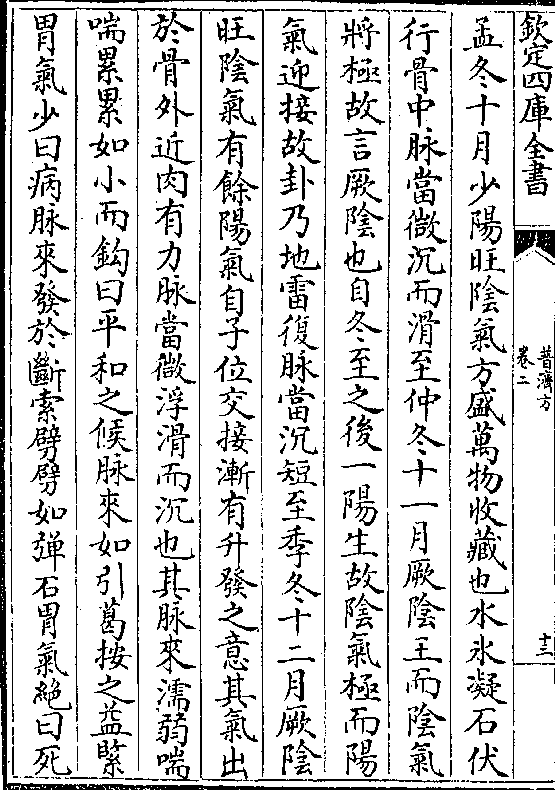 欽定四庫全書
普濟方
卷二
十三
孟冬十月少陽旺陰氣方盛萬物收藏也水氷凝石伏
行骨中脉當微沉而滑至仲冬十一月厥陰王而陰氣
將極故言厥陰也自冬至之後一陽生故陰氣極而陽
氣迎接故卦乃地雷復脉當沉短至季冬十二月厥陰
旺陰氣有餘陽氣自子位交接漸有升發之意其氣出
於骨外近肉有力脉當微浮滑而沉也其脉來濡弱喘
喘累累如小而鈎曰平和之候脉來如引葛按之益緊
胃氣少曰病脉來發於斷索劈劈如弹石胃氣絶曰死